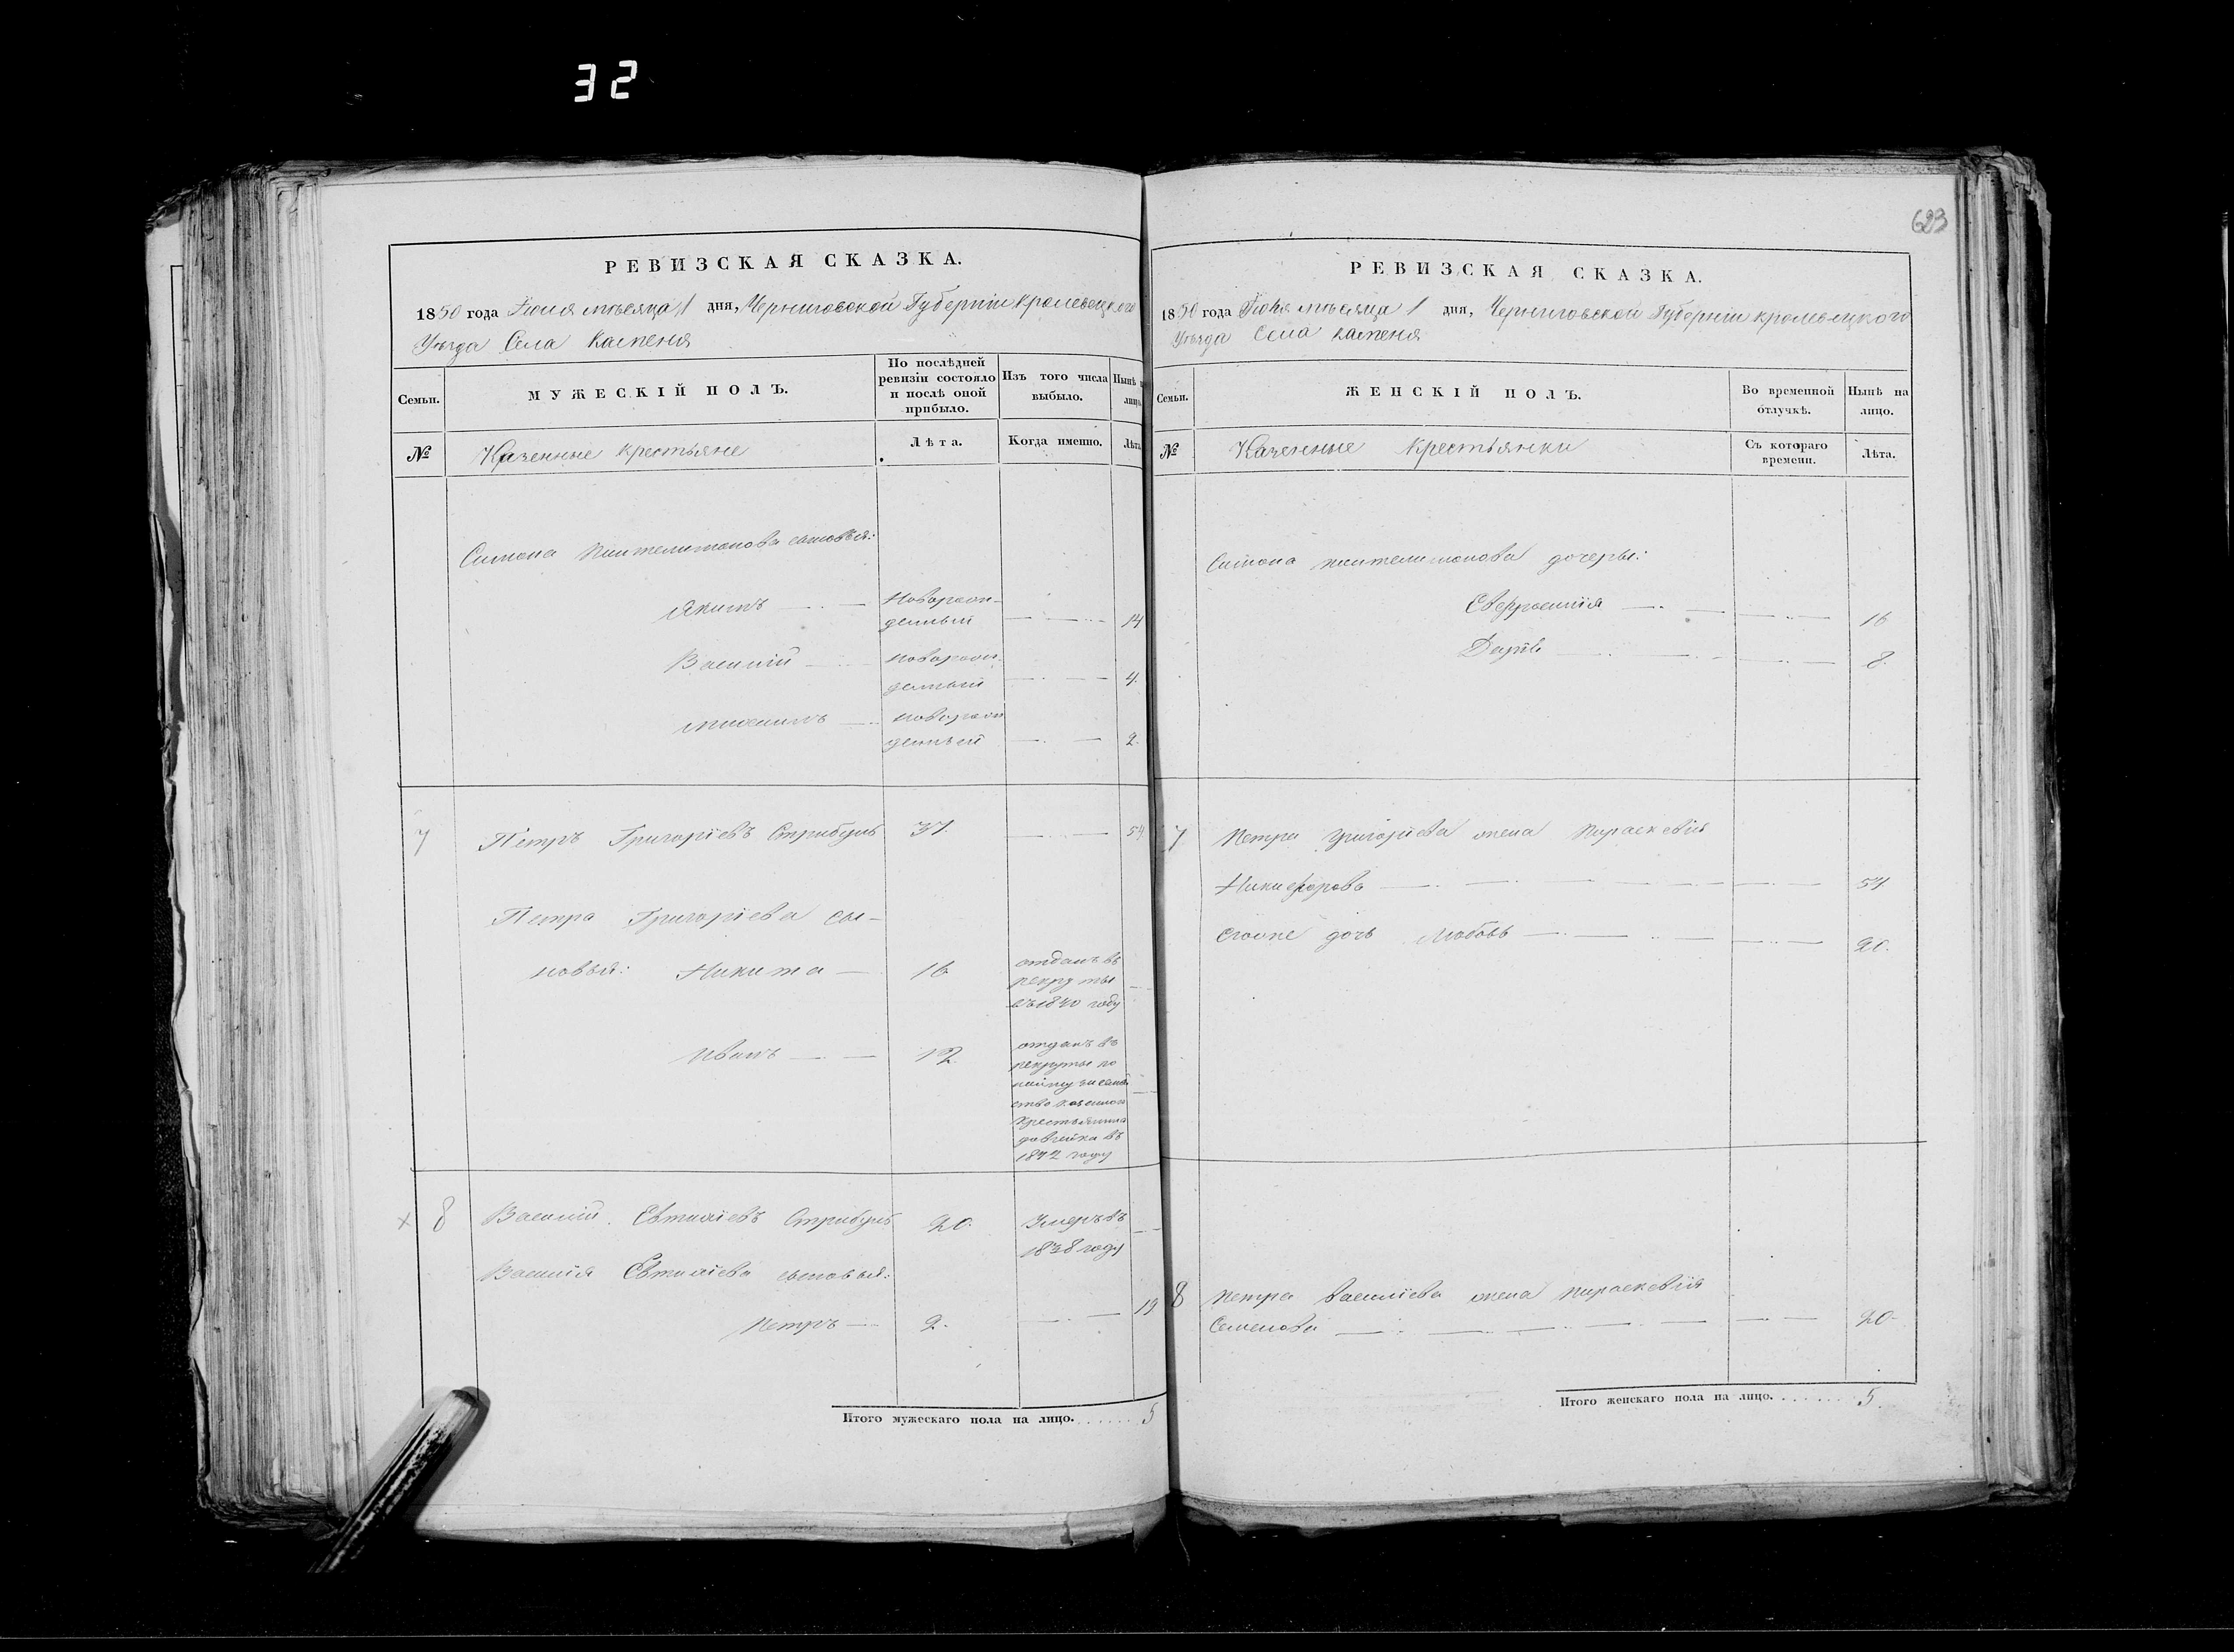 32
623
РЕВИЗСКАЯ СКАЗКА.
1850 года Іюля мѣсяца 1 дня, Черниговской Губерніи Кролевецкого
Уѣзда Села Каменя
Семьи.
МУЖЕСКІЙ ПОЛЪ.
По послѣдней ревизіи состояло и послѣ оной прибыло.
Изъ того числа выбыло.
Нынѣ на лицо.
№
Казенные крестьяне
Лѣта.
Когда именно.
Лѣта
Симона Пантелимонова сыновья:
Якимъ — Новорож-
денный — 14
Василій — новорож-
денный — 4.
новорож
денный — 2.
7 Петръ Григоріевъ Стрибуль 37. — 54
Петра Григоріева сы-
новья: Никита — 16 отданъ въ
рекруты
въ 1840 году
Иванъ — 12 отданъ въ
рекруты по
найму за семей
ство казенног
крестьянина
въ
1842 году
х 8 Василій Евтихіевъ Стрибуль 20. Умеръ въ
1838 году
Василія Евтихіева сыновья:
Петръ — 2. — 19
Итого мужескаго пола на лицо. 5
РЕВИЗСКАЯ СКАЗКА.
1850 года Іюля мѣсяца 1 дня, Черниговской Губерніи Кролевецкого
Уѣзда Села Каменя
Семьи.
ЖЕНСКІЙ ПОЛЪ.
Во временной отлучкѣ.
Нынѣ на лицо.
№
Казенные Крестьянки
Съ котораго времени.
Лѣта.
Симона Пантелимонова дочеры:
Евфросинія — 16
8.
7 Петра Григоріева жена Параскевія
Никифорова — 54
Егоже дочь Любовь — 20.
8 Петра Василіева жена Параскевія
Семенова — 20
Итого женскаго пола на лицо. 5.